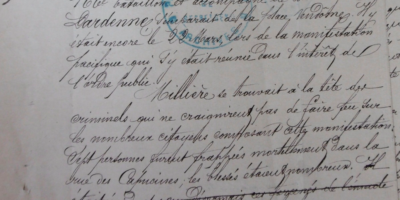 bataillon et accompagné de
Lardenne s'emparait de la place Vendôme. Il y
était encore le 22 Mars lors de la manifestation
pacifique qui s'y était réunie dans l'intérêt de
l'ordre public.
Millière se trouvait à la tête des
criminels qui ne craignirent pas de faire feu sur
les nombreux citoyens composant cette manifestation
Sept personnes furent frappées mortellement dans la
rue des Capucines, les blessés étaient nombreux. Il